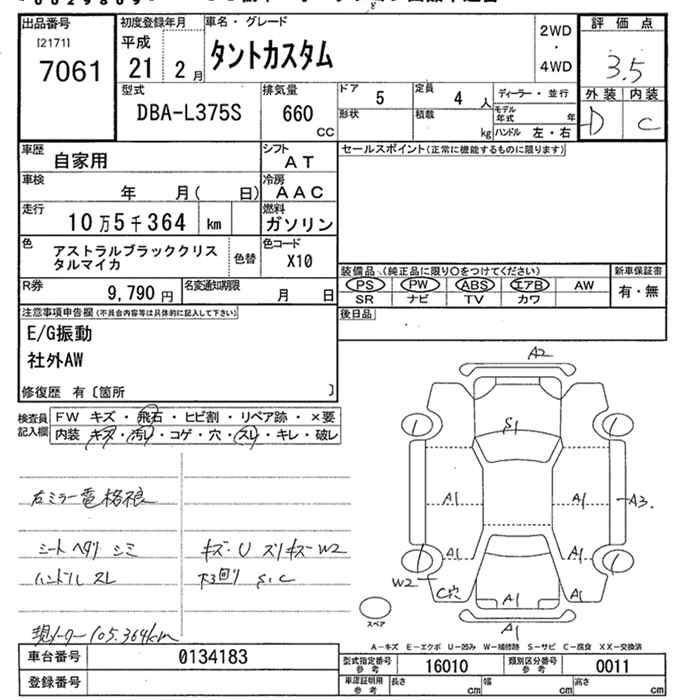 出品番号
[2171]
7061
初度登録年月
平成
21 2月
車名・グレード
タントカスタム
2WD
・
4WD
評価点
3.5
外装 内装
D C
型式
DBA-L375S
排気量
660
CC
ドア
5
定員
4人
ディーラー・並行
モデル年式 年
形状
積載
kg
ハンドル 左・右
車歴
自家用
シフト
AT
セールスポイント(正常に機能するものに限ります)
車検
年 月( 日)
冷房
AAC
走行
10万5千364 km
燃料
ガソリン
色
アストラルブラッククリス
タルマイカ
色替
色コード
X10
装備品(純正品に限り○をつけてください)
PS PW ABS エアB AW
SR ナビ TV カワ
新車保証書
有・無
R券
9,790円
名変通知期限
月 日
後日品
注意事項申告欄(不具合内容等は具体的に記入して下さい)
E/G振動
社外AW
修復歴 有〔箇所 〕
検査員
記入欄
FW キズ・飛石・ヒビ割・リペア跡・×要
内装 キズ・汚レ・コゲ・穴・スレ・キレ・破レ
右ミラー電格狼
シートヘタリ シミ
キズ・U ズリキズ W2
ハンドル スレ
下回り S.C
現メーター105.364km
A2
S1
1 1
A1 A1 A3
A1 A1
1 1
W2 C穴 A1 A1
A1
スペア
A-キズ E-エクボ U-凹み W-補修跡 S-サビ C-腐食 XX-交換済
車台番号
0134183
登録番号
型式指定番号
参考
16010
類別区分番号
参考
0011
車庫証明用
参考
長さ cm
幅 cm
高さ cm